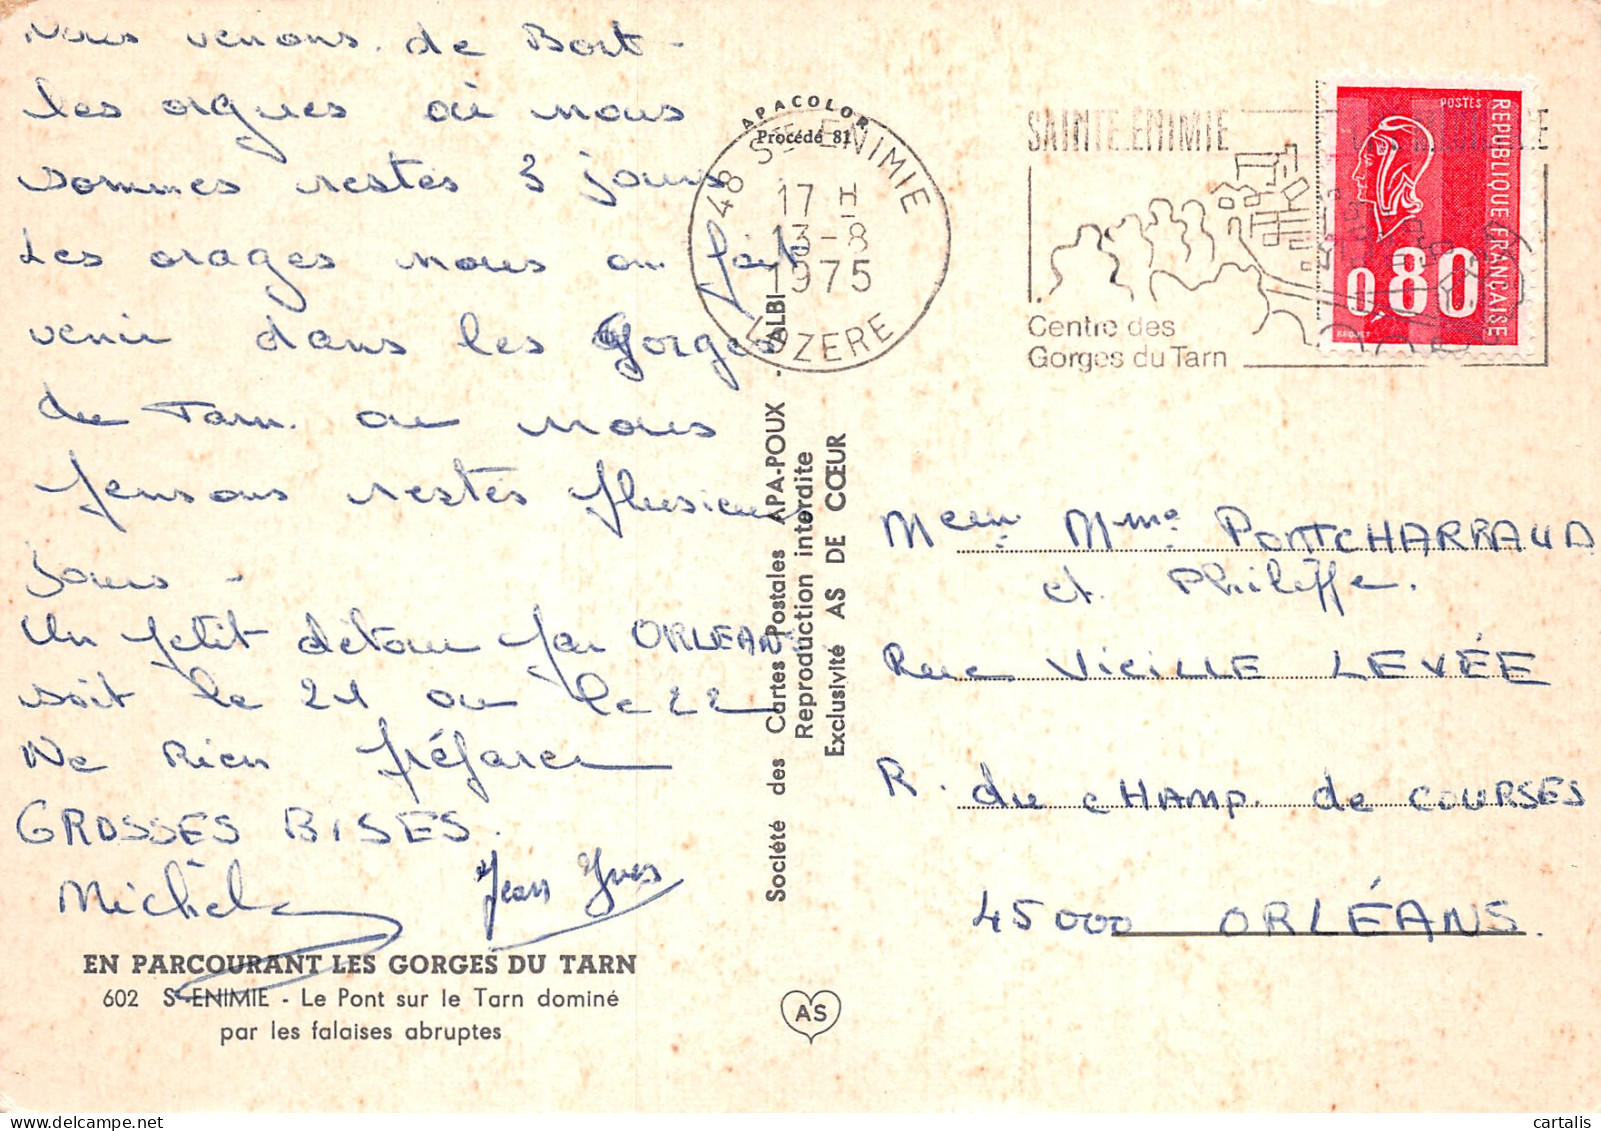 Nous venons de Bort -
les orgues où nous
sommes restés 3 jours
Les orages nous on fait
venir dans les Gorges
du Tarn. ou nous
pensons restés plusieurs
jours -
Un petit détour par ORLEANS
soit le 21 ou le 22
Ne rien préparer
GROSSES BISES.
Michèle Jean Yves
EN PARCOURANT LES GORGES DU TARN
602 Sᵗᵉ-ENIMIE - Le Pont sur le Tarn dominé
par les falaises abruptes
APACOLOR
Procédé 81
48 Sᵀᴱ ENIMIE
17 H
13-8
1975
LOZERE
Société des Cartes Postales APA-POUX - ALBI
Reproduction interdite
Exclusivité AS DE CŒUR
AS
SAINTE.ENIMIE
Centre des
Gorges du Tarn
POSTES
REPUBLIQUE FRANÇAISE
0,80
Mme PONTCHARRAUD
et Philippe.
Rue VIEILLE LEVÉE
R. du CHAMP. de COURSES
45000 ORLÉANS.
cartalis
delcampe.net